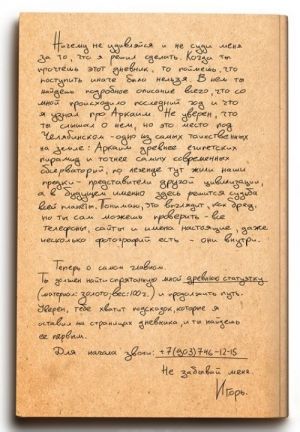 Ничему не удивляйся и не суди меня
за то, что я решил сделать. Когда ты
прочтёшь этот дневник, то поймешь, что
поступить иначе было нельзя. В нем ты
найдешь подробное описание всего, что со
мной происходило последний год и что
я узнал про Аркаим. Не уверен, что
ты слышал о нем, но это место под
Челябинском - одно из самых таинственных
на земле: Аркаим древнее египетских
пирамид и точнее самых современных
обсерваторий, по легенде тут жили наши
предки - представители другой цивилизации
а в будущем именно здесь решится судьба
всей планеты. Понимаю, это выглядит, как бред,
но ты сам можешь проверить - все
телефоны, сайты и имена настоящие, даже
несколько фотографий есть - они внутри.
Теперь о самом главном.
Ты должен найти спрятанную мной древнюю статуэтку
(материал: золото; вес: 100 г.) и продолжить путь.
Уверен, тебе хватит подсказок, которые я
оставил на страницах дневника, и ты найдешь
ее первым.
Для начала звони: +7(903)746-12-15
Не забывай меня.
Игорь.